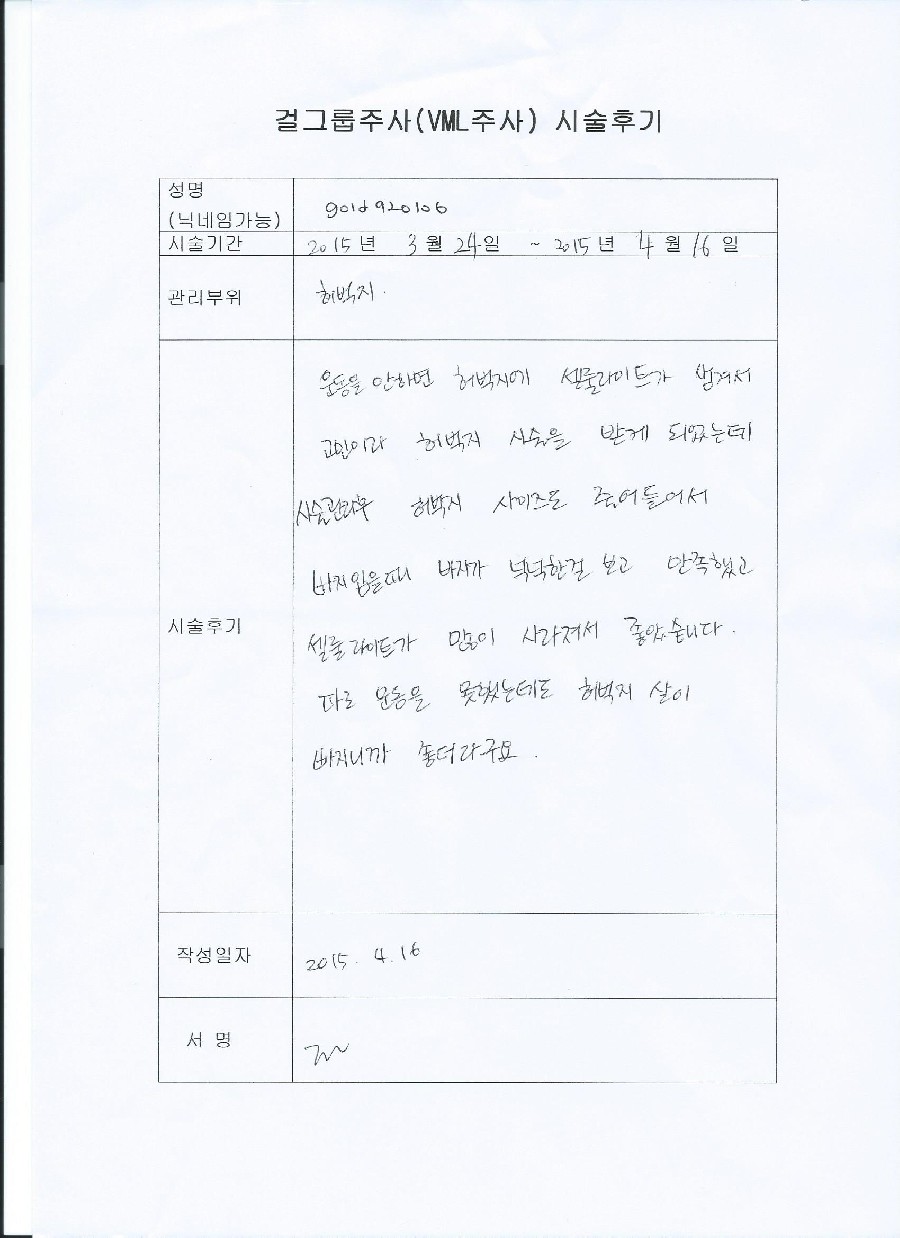 걸그룹주사(VML주사) 시술후기
성명
(닉네임가능)
gold920106
시술기간
2015년 3월 24일 ~ 2015년 4월 16일
관리부위
허벅지.
시술후기
운동을 안하면 허벅지에 셀룰라이트가 생겨서
고민이라 허벅지 시술을 받게 되었는데
시술관리후 허벅지 사이즈도 줄어들어서
바지입을때 바지가 넉넉한걸 보고 만족했고
셀룰라이트가 많이 사라져서 좋았습니다.
따로 운동을 못했는데도 허벅지 살이
빠지니까 좋더라구요.
작성일자
2015. 4. 16
서 명